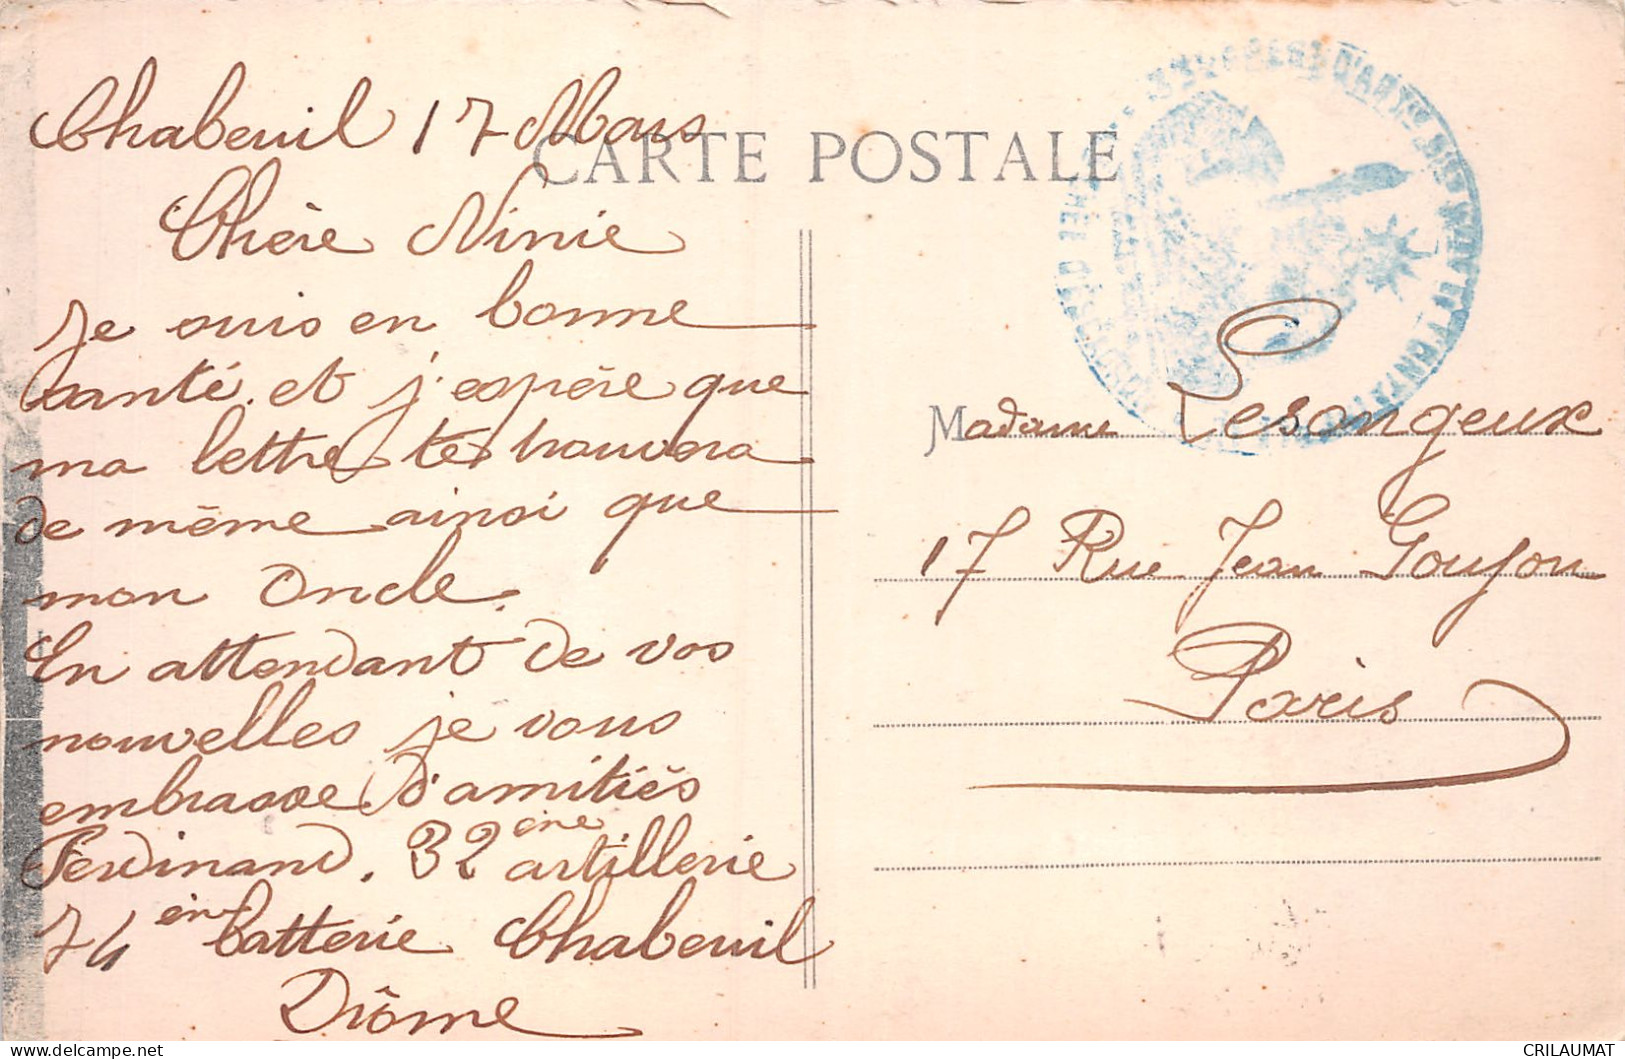 CARTE POSTALE
Chabeuil 17 Mars
Chère Ninie
Je suis en bonne
santé. et j'espère que
ma lettre te trouvera
de même ainsi que
mon Oncle.
En attendant de vos
nouvelles je vous
embrasse d'amitiés
Ferdinand. 32ème artillerie
74èm batterie Chabeuil
Drôme
Madame Lesongeux
17 Rue Jean Goujon
Paris
delcampe.net
CRILAUMAT